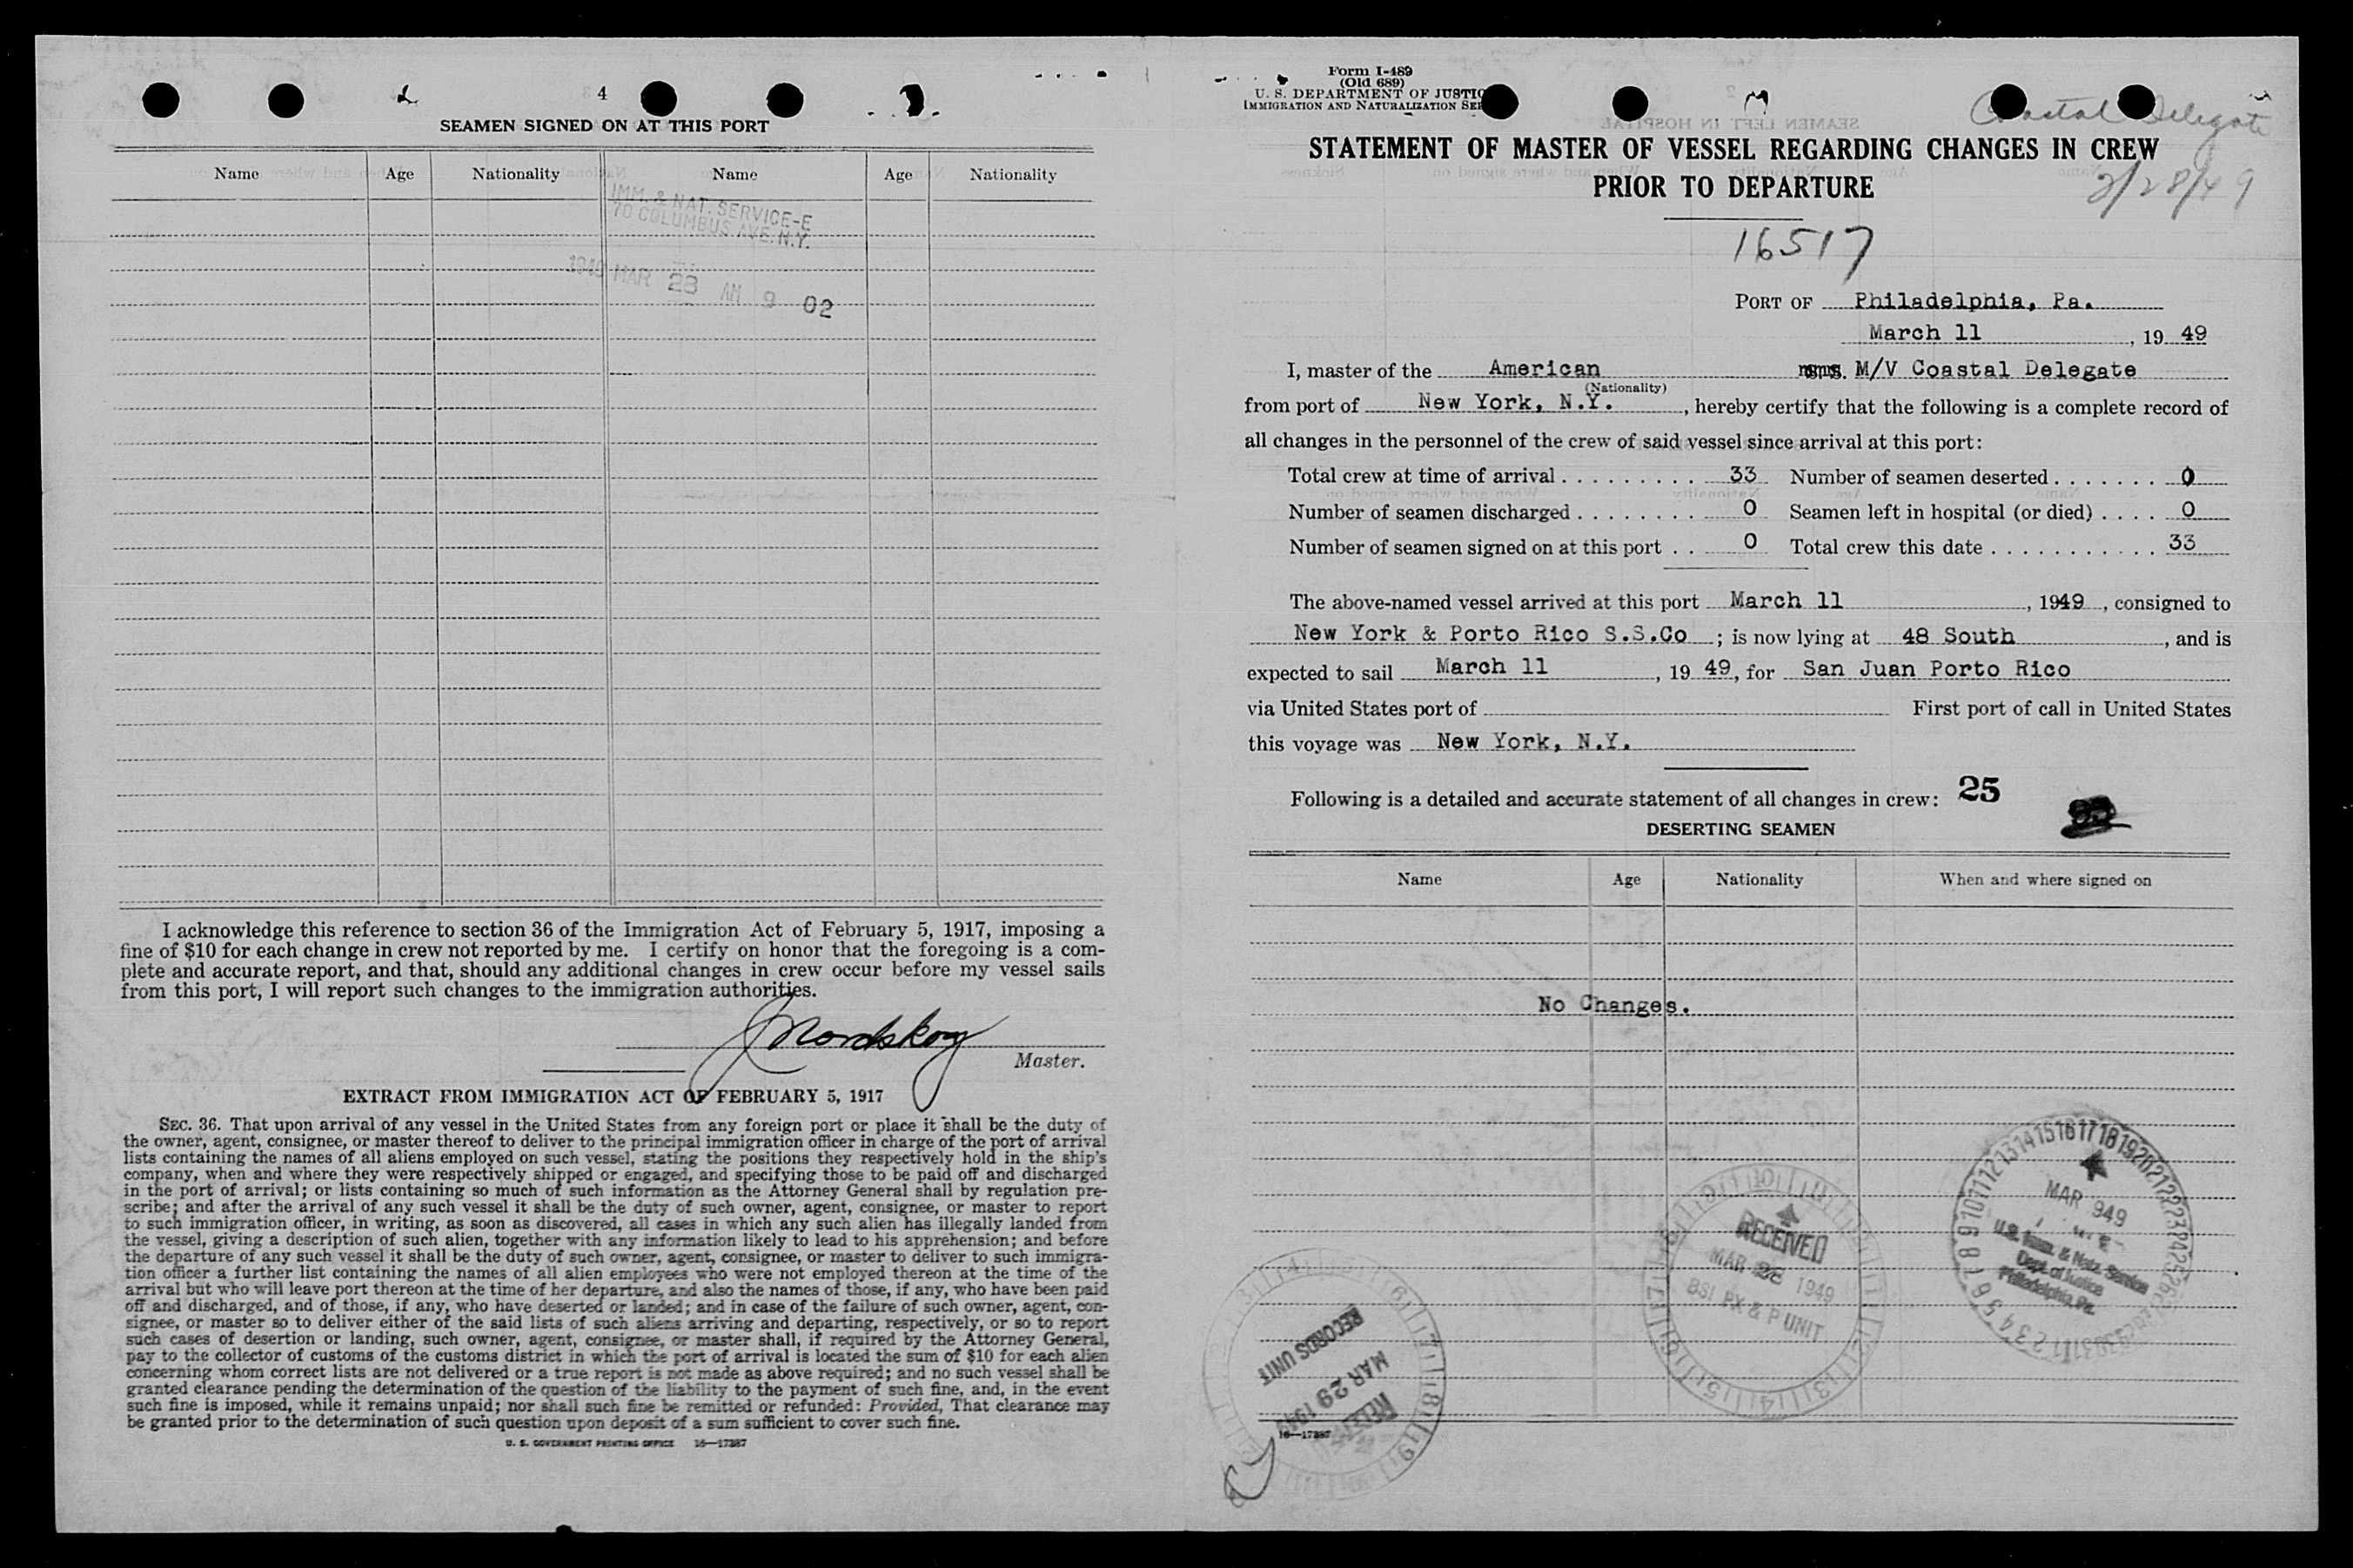 4
SEAMEN SIGNED ON AT THIS PORT
Name Age Nationality Name Age Nationality
IMM. & NAT. SERVICE-E
70 COLUMBUS AVE. N.Y.
1949 MAR 28 AM 9 02
I acknowledge this reference to section 36 of the Immigration Act of February 5, 1917, imposing a
fine of $10 for each change in crew not reported by me. I certify on honor that the foregoing is a com-
plete and accurate report, and that, should any additional changes in crew occur before my vessel sails
from this port, I will report such changes to the immigration authorities.
J Nordskog
Master.
EXTRACT FROM IMMIGRATION ACT OF FEBRUARY 5, 1917
SEC. 36. That upon arrival of any vessel in the United States from any foreign port or place it shall be the duty of
the owner, agent, consignee, or master thereof to deliver to the principal immigration officer in charge of the port of arrival
lists containing the names of all aliens employed on such vessel, stating the positions they respectively hold in the ship's
company, when and where they were respectively shipped or engaged, and specifying those to be paid off and discharged
in the port of arrival; or lists containing so much of such information as the Attorney General shall by regulation pre-
scribe; and after the arrival of any such vessel it shall be the duty of such owner, agent, consignee, or master to report
to such immigration officer, in writing, as soon as discovered, all cases in which any such alien has illegally landed from
the vessel, giving a description of such alien, together with any information likely to lead to his apprehension; and before
the departure of any such vessel it shall be the duty of such owner, agent, consignee, or master to deliver to such immigra-
tion officer a further list containing the names of all alien employees who were not employed thereon at the time of the
arrival but who will leave port thereon at the time of her departure, and also the names of those, if any, who have been paid
off and discharged, and of those, if any, who have deserted or landed; and in case of the failure of such owner, agent, con-
signee, or master so to deliver either of the said lists of such aliens arriving and departing, respectively, or so to report
such cases of desertion or landing, such owner, agent, consignee, or master shall, if required by the Attorney General,
pay to the collector of customs of the customs district in which the port of arrival is located the sum of $10 for each alien
concerning whom correct lists are not delivered or a true report is not made as above required; and no such vessel shall be
granted clearance pending the determination of the question of the liability to the payment of such fine, and, in the event
such fine is imposed, while it remains unpaid; nor shall such fine be remitted or refunded: Provided, That clearance may
be granted prior to the determination of such question upon deposit of a sum sufficient to cover such fine.
U. S. GOVERNMENT PRINTING OFFICE 16—17387
Form I-489
(Old 689)
U. S. DEPARTMENT OF JUSTIC
IMMIGRATION AND NATURALIZATION SER
Coastal Delegate
STATEMENT OF MASTER OF VESSEL REGARDING CHANGES IN CREW
PRIOR TO DEPARTURE
2/28/49
16517
PORT OF Philadelphia, Pa.
March 11, 19 49
I, master of the American M/V Coastal Delegate
(Nationality)
from port of New York, N.Y., hereby certify that the following is a complete record of
all changes in the personnel of the crew of said vessel since arrival at this port:
Total crew at time of arrival . . . . . . . . . 33 Number of seamen deserted . . . . . . . 0
Number of seamen discharged . . . . . . . . 0 Seamen left in hospital (or died) . . . . 0
Number of seamen signed on at this port . . 0 Total crew this date . . . . . . . . . . . 33
The above-named vessel arrived at this port March 11, 1949, consigned to
New York & Porto Rico S.S.Co; is now lying at 48 South, and is
expected to sail March 11, 19 49, for San Juan Porto Rico
via United States port of First port of call in United States
this voyage was New York, N.Y.
Following is a detailed and accurate statement of all changes in crew: 25
DESERTING SEAMEN
Name Age Nationality When and where signed on
No Changes.
RECEIVED
MAR 28 1949
BSI PX & P UNIT
MAR 949
U.S. Imm. & Natz. Service
Dept. of Justice
Philadelphia, Pa.
RECORDS UNIT
MAR 29 1949
16—17387